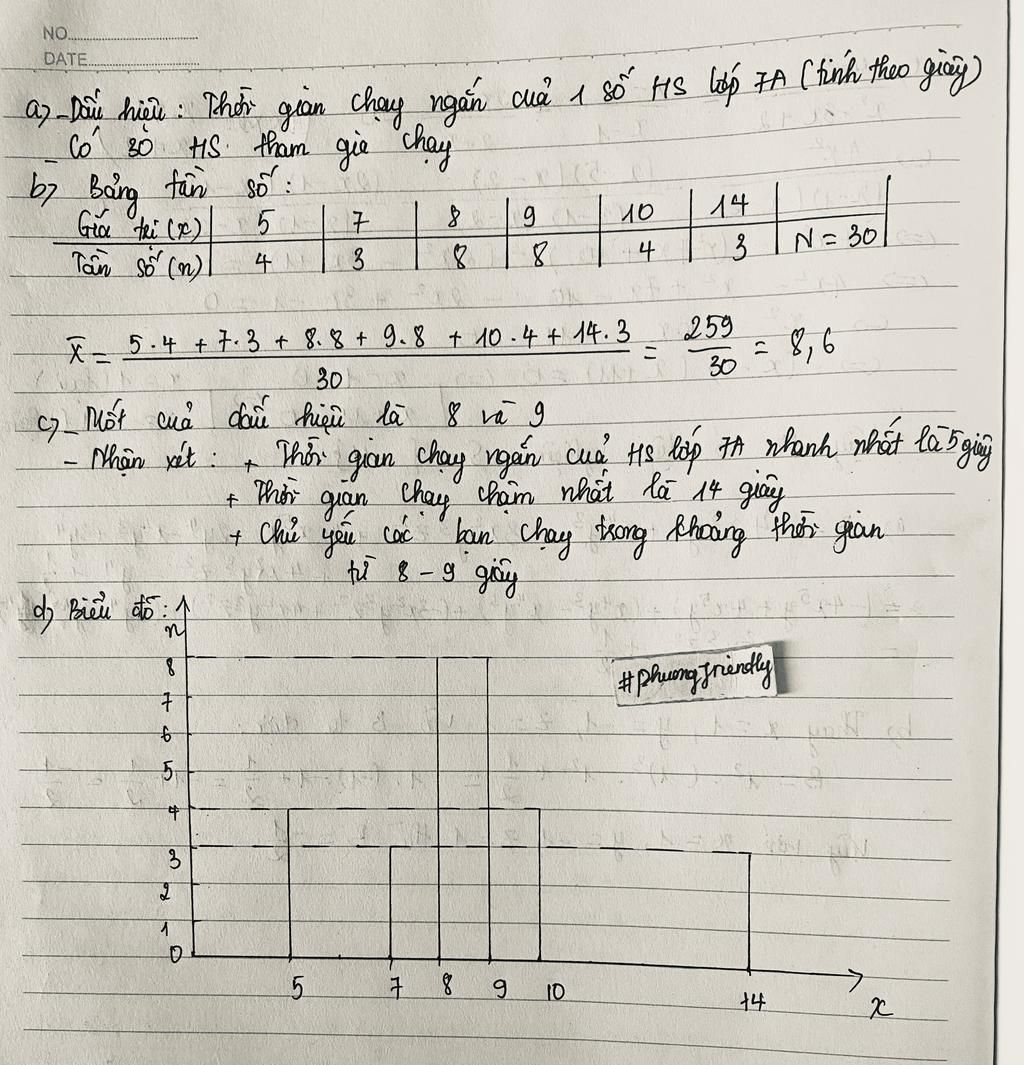 NO.
DATE
a) - Dấu hiệu: Thời gian chạy ngắn cuả 1 số HS lớp 7A (tính theo giây)
- Có 30 HS tham gia chạy
b) Bảng tần số:
Giá trị (x) 5 7 8 9 10 14
Tần số (n) 4 3 8 8 4 3 N = 30
x̄ = (5.4 + 7.3 + 8.8 + 9.8 + 10.4 + 14.3)/30 = 259/30 = 8,6
c) - Mốt cuả dấu hiệu là 8 và 9
- Nhận xét: + Thời gian chạy ngắn cuả HS lớp 7A nhanh nhất là 5 giây
+ Thời gian chạy chậm nhất là 14 giây
+ Chủ yếu các bạn chạy trong khoảng thời gian
từ 8 - 9 giây
d) Biểu đồ:
n
8
#phuongfriendly
7
6
5
4
3
2
1
0
5 7 8 9 10 14
x